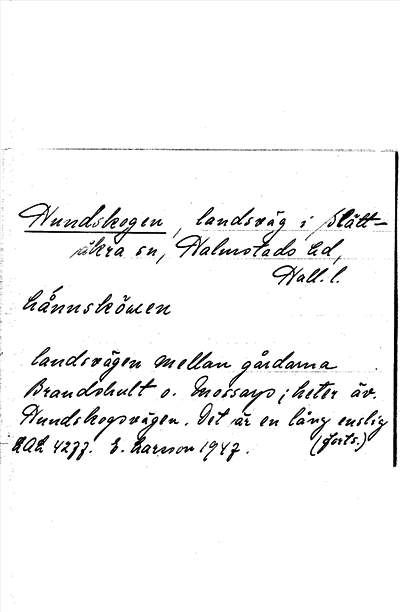 Hundskogen, landsväg i Slätt-
åkra sn, Halmstads hd,
Hall. l.
hånnsköuen
landsvägen mellan gårdarna
Brandshult o. Mossarp; heter äv.
Hundskogsvägen. Det är en lång enslig
LAL 4277. E. Larsson 1947. (forts.)